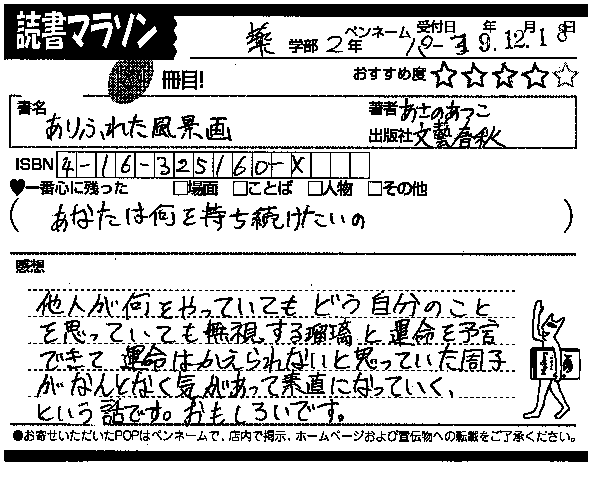 読書マラソン
ペンネーム 受付日 年 月 日
薬 学部 2年 19.12.18
冊目!
おすすめ度 ☆☆☆☆☆
書名 ありふれた風景画
著者 あさのあつこ
出版社 文藝春秋
ISBN 4-16-325160-X
♥一番心に残った □場面 □ことば □人物 □その他
(あなたは何を持ち続けたいの)
感想
他人が何をやっていてもどう自分のこと
を思っていても無視する瑠璃と運命を予言
できて運命はかえられないと思っていた周子
がなんとなく気があって素直になっていく、
という話です。おもしろいです。
●お寄せいただいたPOPはペンネームで、店内で掲示、ホームページおよび宣伝物への転載をご了承ください。